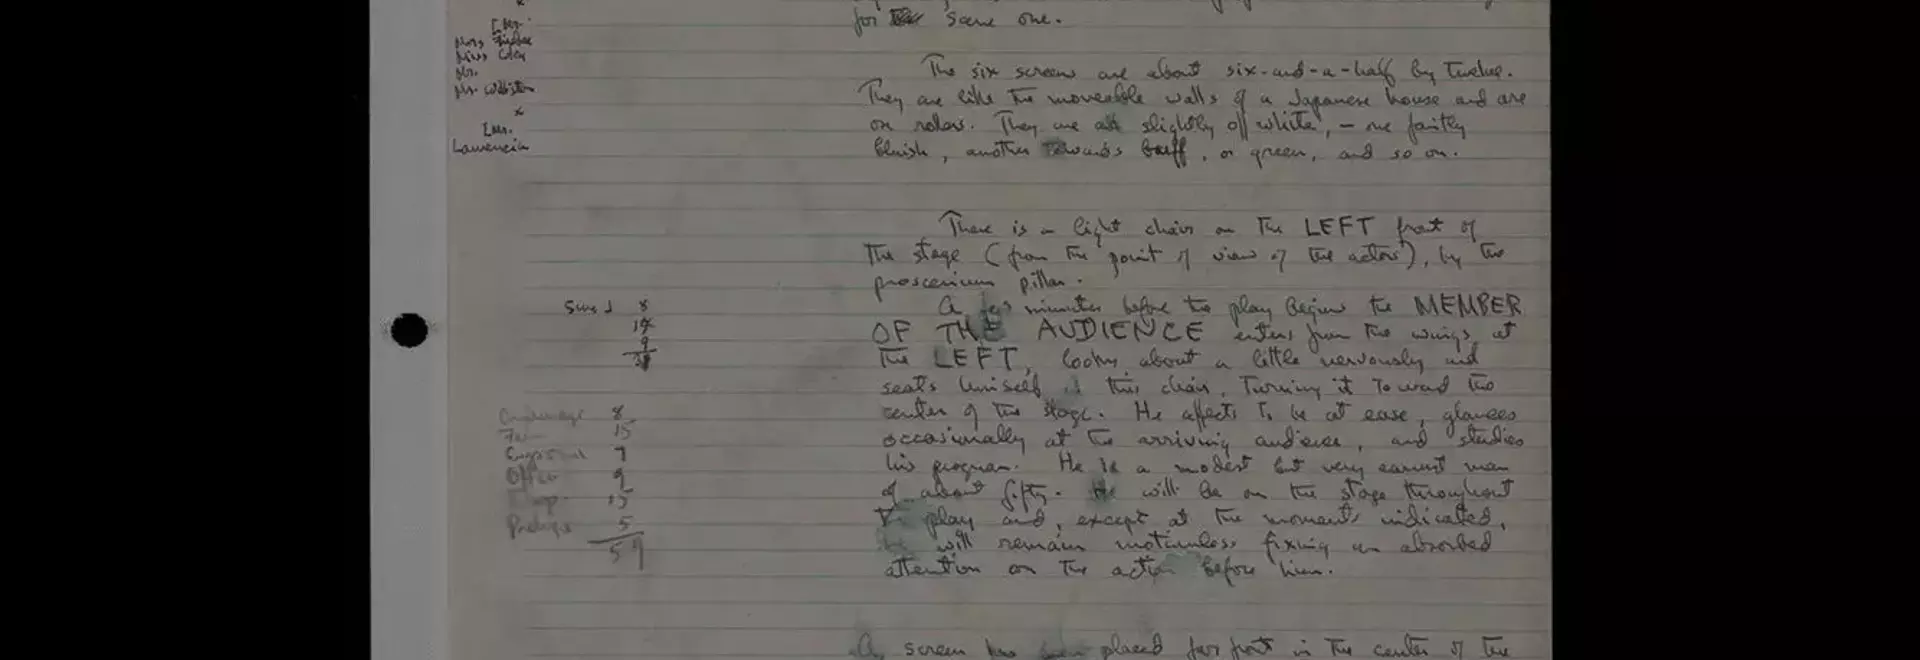 for scene one.
The six screens are about six-and-a-half by twelve.
They are like the moveable walls of a Japanese house and are
on rollers. They are all slightly off white, – one faintly
bluish, another towards buff, or green, and so on.
There is a light chair on the LEFT front of
the stage (from the point of view of the actors), by the
proscenium pillar.
A few minutes before the play begins the MEMBER
OF THE AUDIENCE enters from the wings, at
the LEFT, looks about a little nervously and
seats himself in this chair, turning it toward the
center of the stage. He affects to be at ease, glances
occasionally at the arriving audience, and studies
his program. He is a modest but very earnest man
of about fifty. He will be on the stage throughout
the play and, except at the moments indicated,
will remain motionless fixing an absorbed
attention on the action before him.
A screen has been placed far front in the center of the
x
[Mr.
Mrs.
Miss
Mr.
Mr. Webster
x
[Mr.
Lawrencia
8
9
8
15
7
Office 9
15
5
59